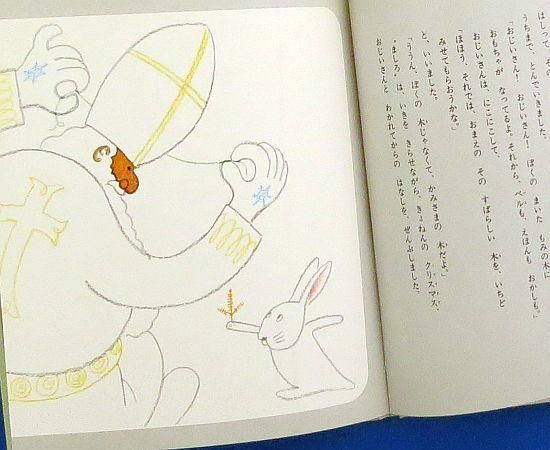 はしって、そ
うちまで、とんでいきました。
「おじいさん! おじいさん! ぼくの まいた もみの木に
おもちゃが なってるよ。それから、ベルも、えほんも おかしも。」
おじいさんは、にこにこして、
「ほほう、それでは、おまえの その すばらしい 木を、いちど
みせてもらおうかな。」
と、いいました。
「ううん、ぼくの 木じゃなくて、かみさまの 木だよ。」
"ましろ"は、いきを きらせながら、きょねんの クリスマス、
おじいさんと わかれてからの はなしを、ぜんぶしました。